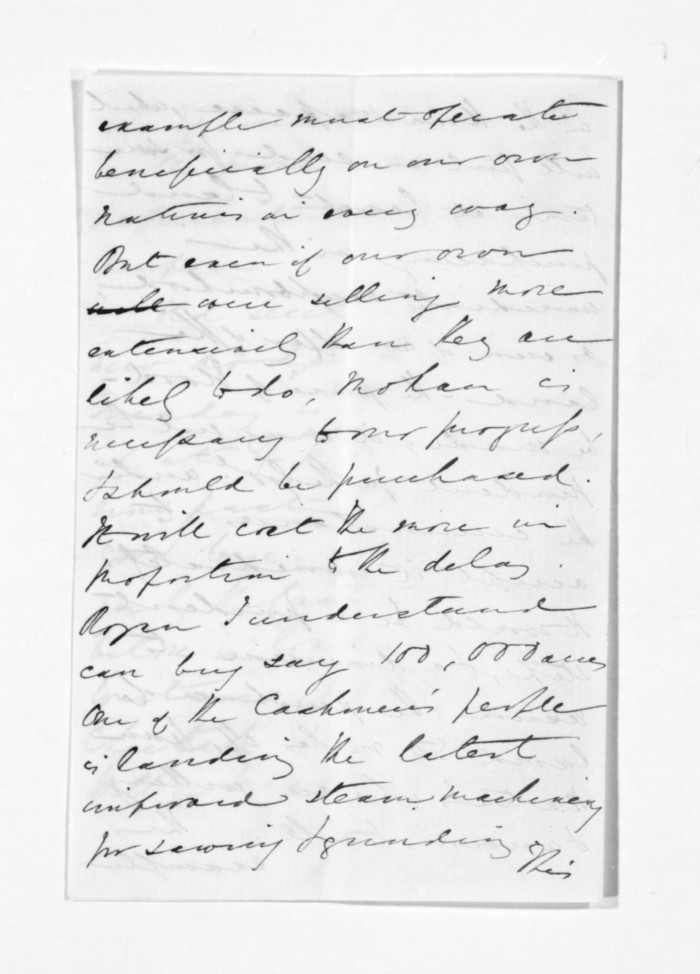 example must operate
beneficially on our own
natives in every way.
But even if our own
were selling more
extensively than they are
likely to do, Mohaka is
necessary to our progress,
& should be purchased.
It will cost the more in
proportion to the delay.
I understand
can buy say 100,000 acres
One of the Cashmere's people
is landing the latest
improved steam machinery
for sawing & grinding
This